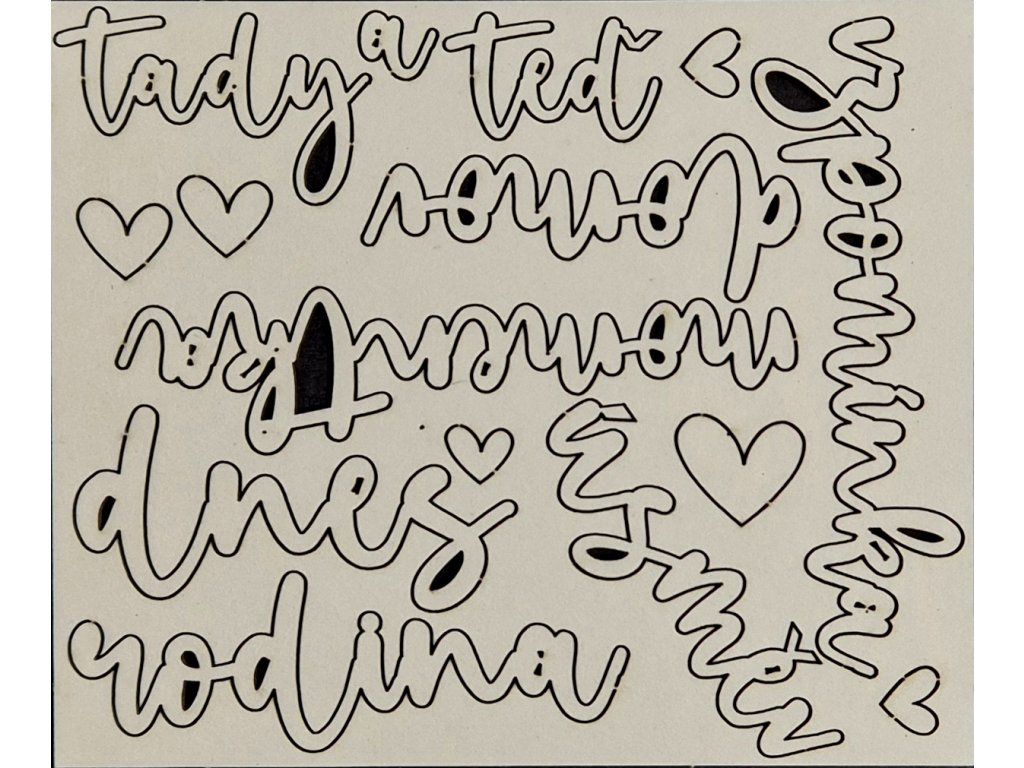 tady a teď
vzpomínka
domov
momentka
dnes
úsměv
rodina